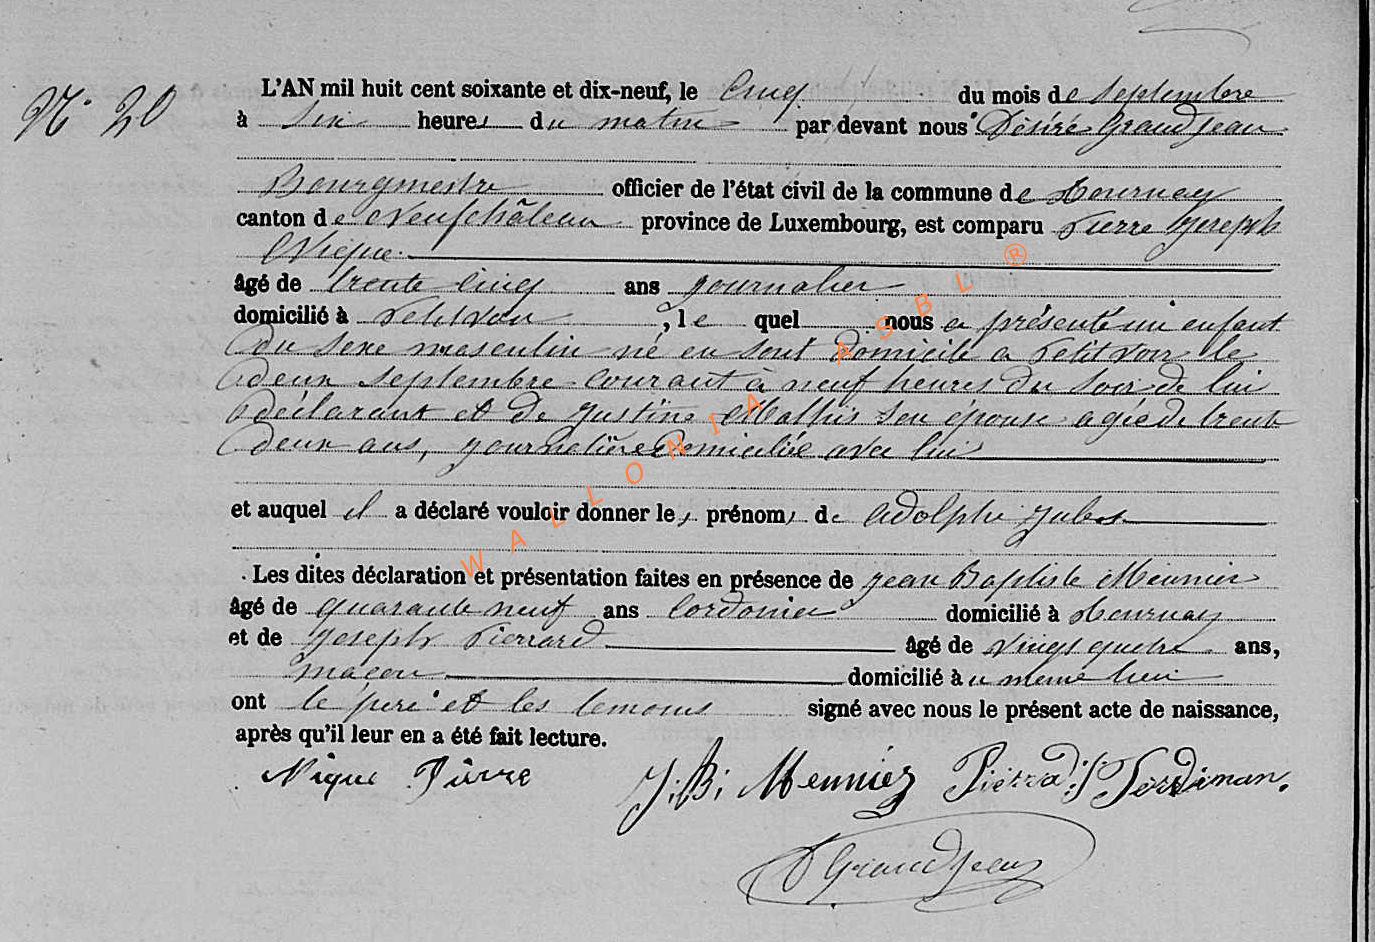 N° 20
L'AN mil huit cent soixante et dix-neuf, le Cinq du mois de Septembre
à Six heures du matin par devant nous Désiré Grandjean
Bourgmestre officier de l'état civil de la commune de Tournay
canton de Neufchâteau province de Luxembourg, est comparu Pierre Joseph
Nique
âgé de trente cinq ans journalier
domicilié à Petitvoir, le quel nous a présenté un enfant
du sexe masculin né en sont domicile a Petitvoir le
deux septembre courant à neuf heures du soir de lui
déclarant et de Justine Mathis son épouse agée de trente
deux ans, journalière domiciliée avec lui
et auquel il a déclaré vouloir donner les prénoms de Adolphe Jules
Les dites déclaration et présentation faites en présence de Jean Baptiste Meunier
âgé de quarante neuf ans Cordonier domicilié à Tournay
et de Joseph Pierrard âgé de vingt quatre ans,
maçon domicilié au meme lieu
ont le père et les temoins signé avec nous le présent acte de naissance,
après qu'il leur en a été fait lecture.
Nique Pierre J. B. Meunier Pierrard J. Ferdinan.
D Grandjean
WALLONIA ASBL ®